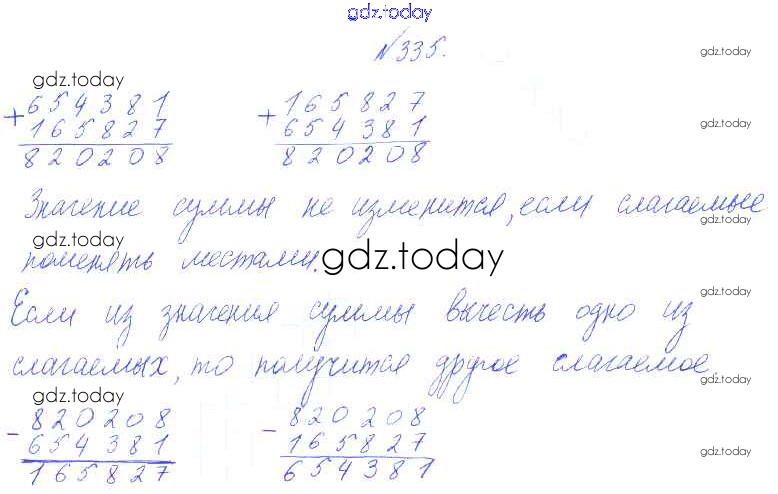 gdz.today
№335.
gdz.today
gdz.today
+ 654381 + 165827
165827 654381
820208 820208
gdz.today
Значение суммы не изменится, если слагаемые
gdz.today
gdz.today
поменять местами.
gdz.today
gdz.today
Если из значения суммы вычесть одно из
слагаемых, то получится другое слагаемое.
gdz.today
gdz.today
- 820208 - 820208
654381 165827
165827 654381
gdz.today